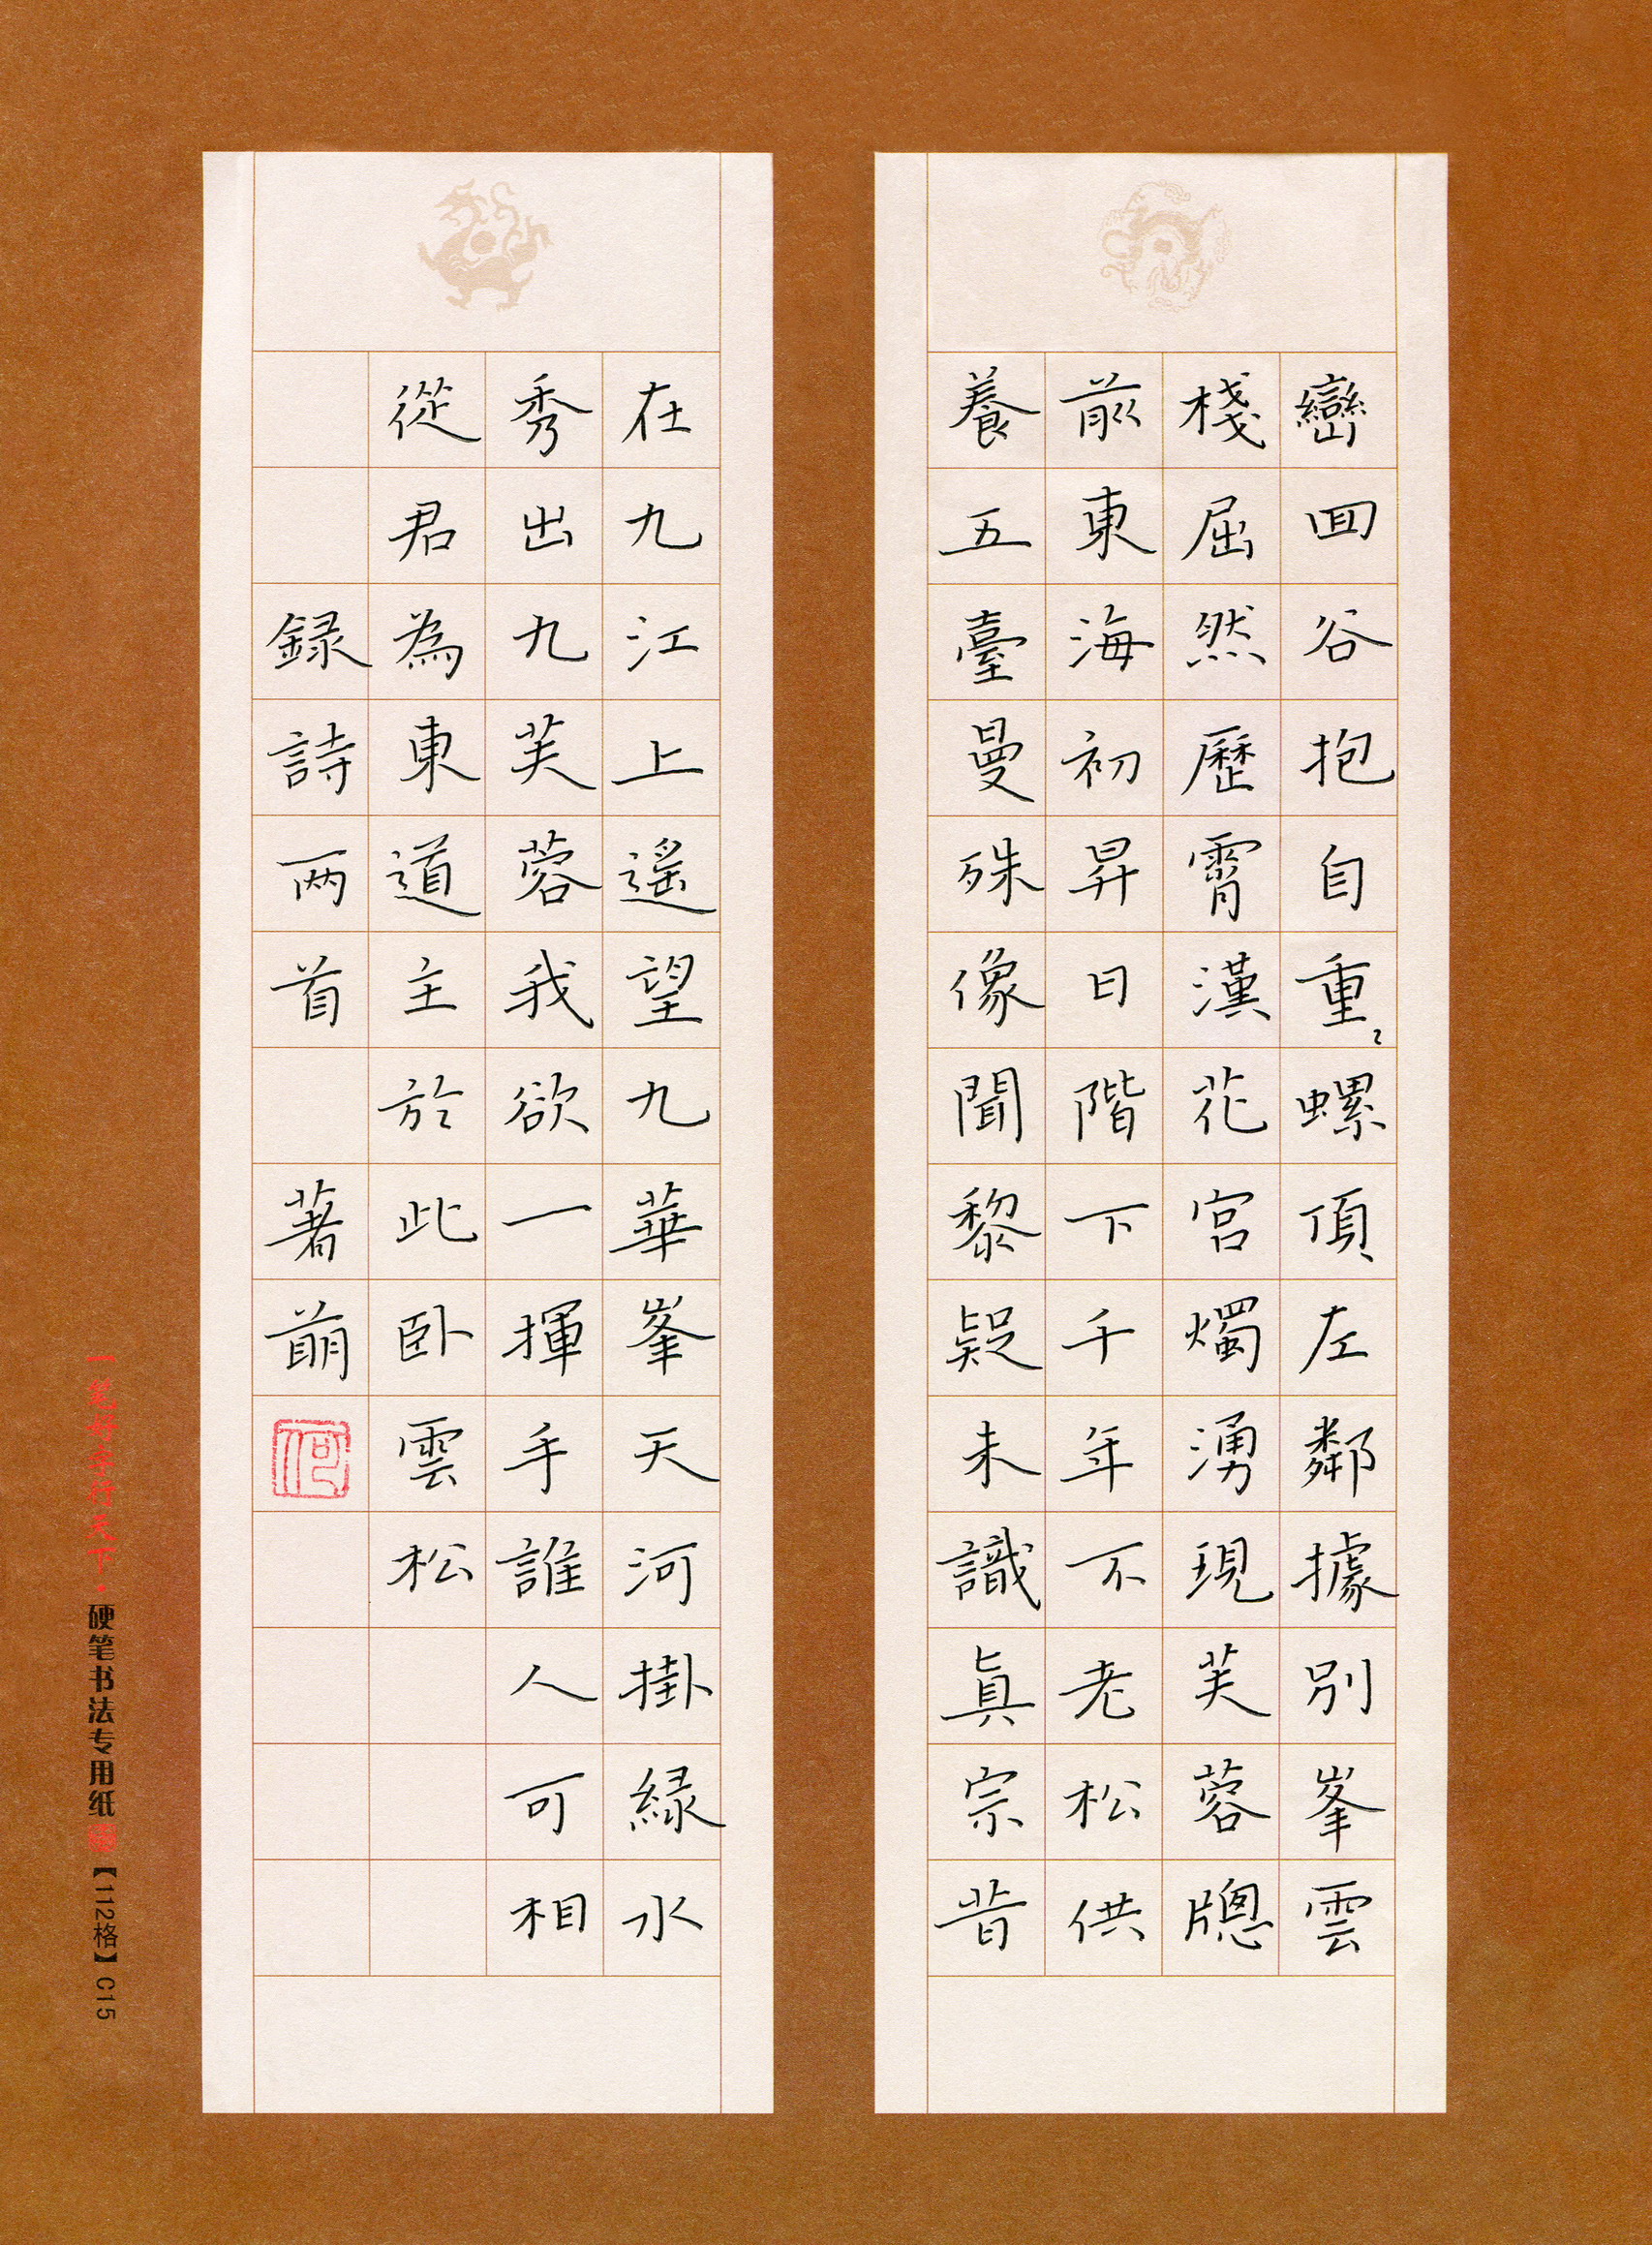 巒回谷抱自重〻螺頂左鄰據別峯雲
棧屈然歷霄漢花宮燭湧現芙蓉牕
前東海初昇日階下千年不老松供
養五臺曼殊像聞黎疑未識真宗昔
在九江上遥望九華峯天河掛緑水
秀出九芙蓉我欲一揮手誰人可相
從君為東道主於此卧雲松
録詩两首 著萌
何
一笔好字行天下·硬笔书法专用纸【112格】C15